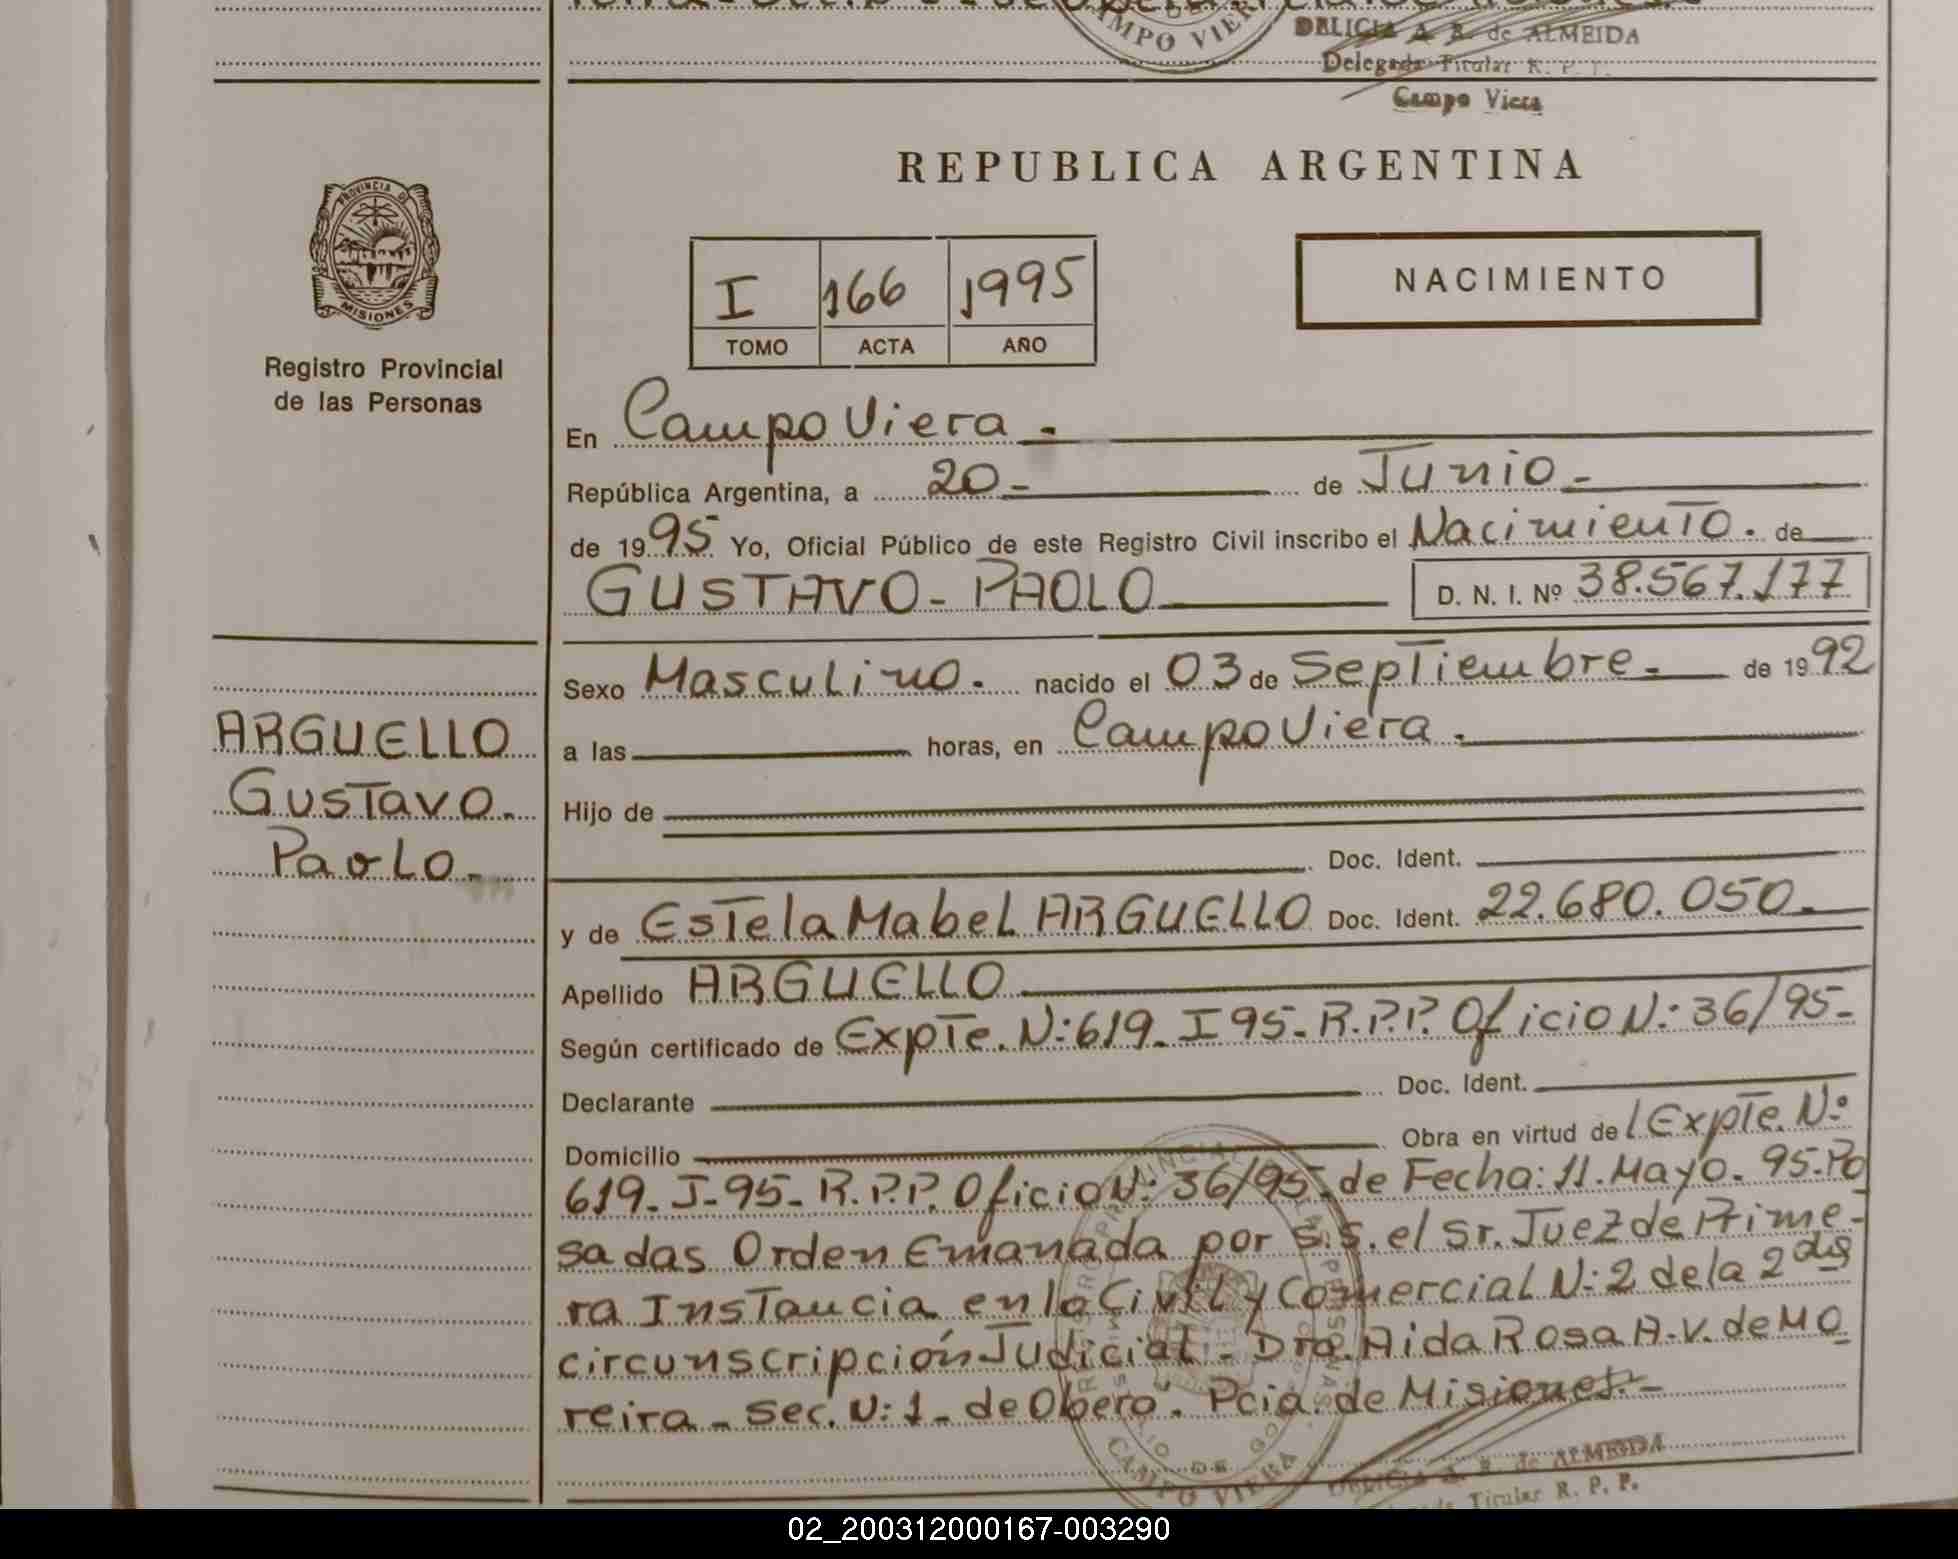 CAMPO VIERA
DELICIA A. B. de ALMEIDA
Delegada Titular R. P. P.
Campo Viera
REPUBLICA ARGENTINA
PROVINCIA DE
MISIONES
I 166 1995
TOMO ACTA AÑO
NACIMIENTO
Registro Provincial
de las Personas
En Campo Viera.
República Argentina, a 20- de Junio-
de 1995 Yo, Oficial Público de este Registro Civil inscribo el Nacimiento. de
GUSTAVO-PAOLO D. N. I. Nº 38.567.177
Sexo Masculino. nacido el 03 de Septiembre. de 1992
ARGUELLO
Gustavo.
Paolo.
a las horas, en Campo Viera.
Hijo de
Doc. Ident.
y de Estela Mabel ARGUELLO Doc. Ident. 22.680.050.
Apellido ARGUELLO
Según certificado de Expte. N: 619-I95-R.P.P. Oficio N: 36/95-
Declarante Doc. Ident.
Domicilio Obra en virtud del Expte. Nº
619-I-95-R.P.P. Oficio N: 36/95-de Fecha: 11. Mayo. 95. Po
sadas Orden Emanada por S.S. el Sr. Juez de Prime-
ra Instancia en lo Civil y Comercial N: 2 de la 2da
circunscripción Judicial - Dra. Aida Rosa A.V. de MO
reira - Sec. N: 1 - de Oberá. Pcia. de Misiones.-
CAMPO VIERA
DELICIA A. B. de ALMEIDA
Titular R. P. P.
02_200312000167-003290